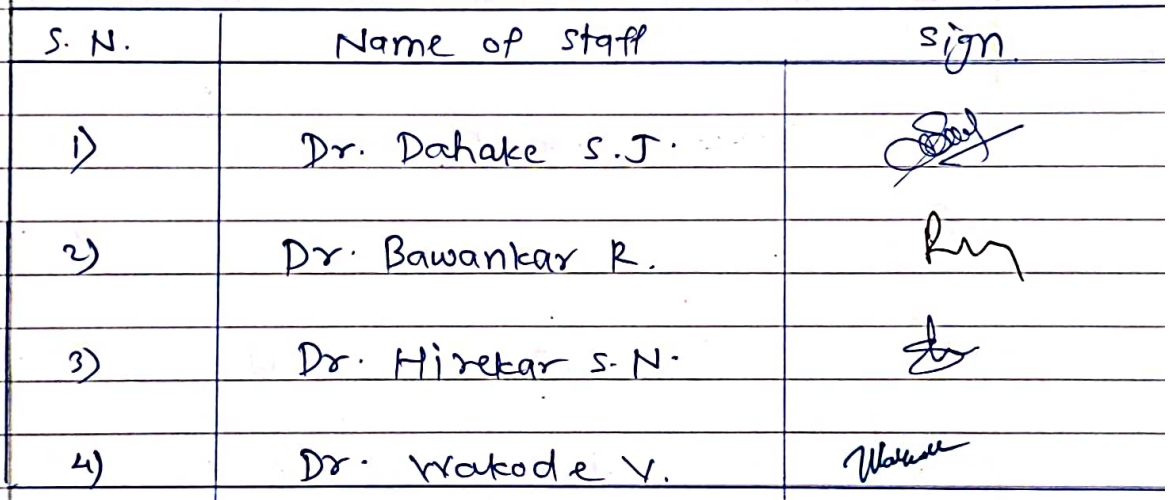 S. N. Name of Staff Sign.
1) Dr. Dahake S.J.
2) Dr. Bawankar R.
3) Dr. Hirekar S. N.
4) Dr. Wakode V.